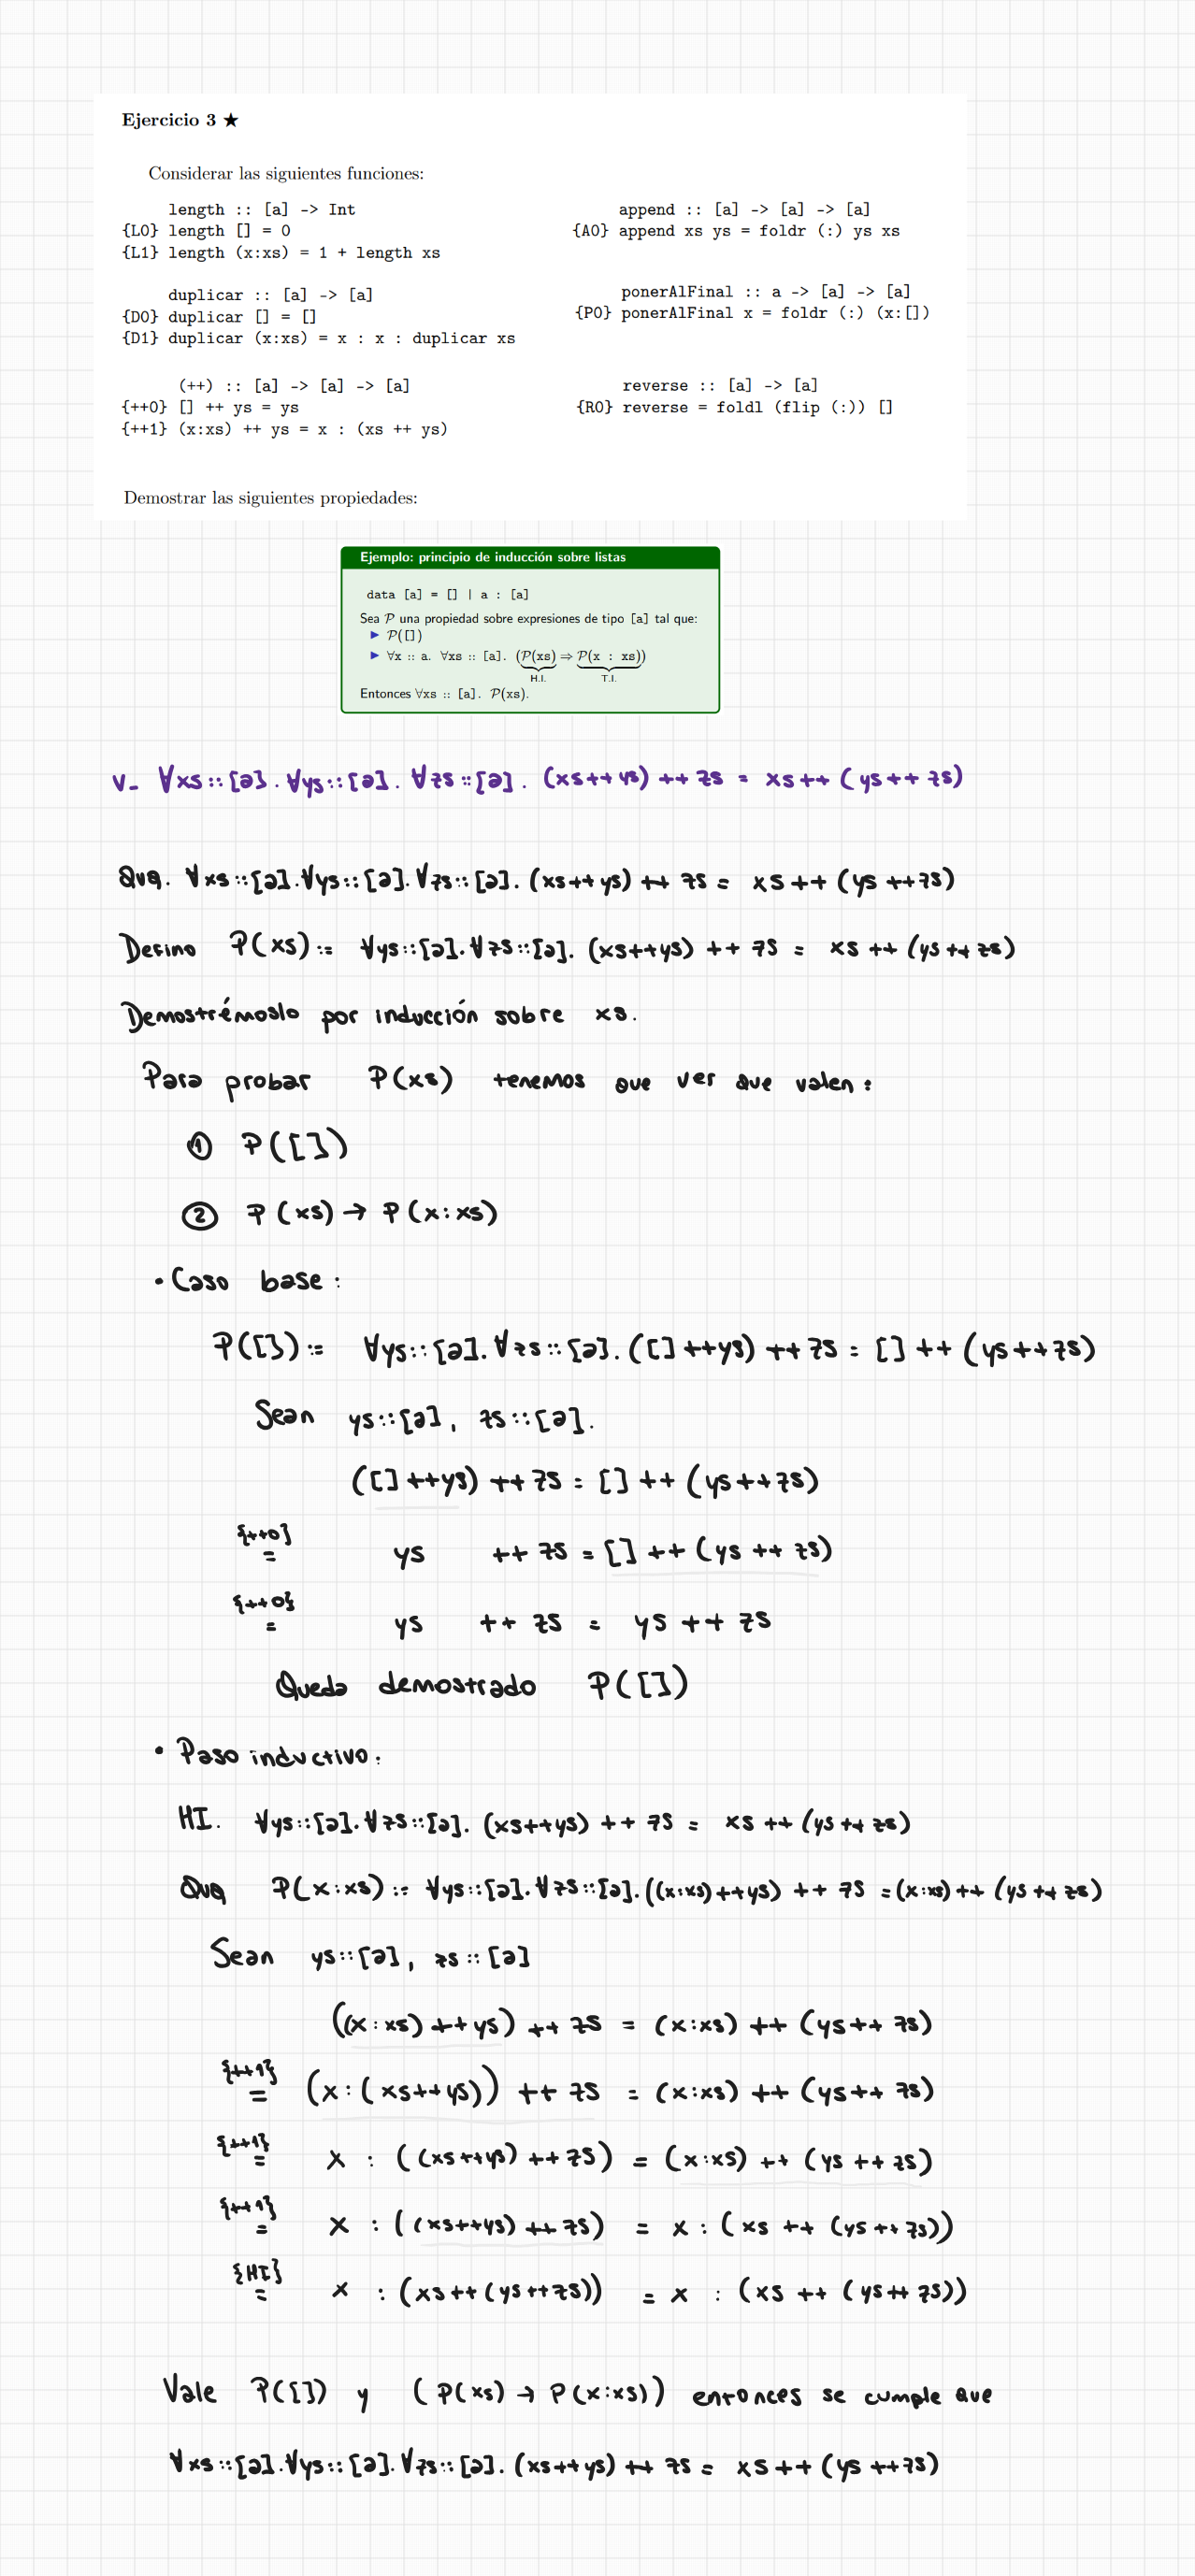 Ejercicio 3 ★
Considerar las siguientes funciones:
length :: [a] -> Int
{L0} length [] = 0
{L1} length (x:xs) = 1 + length xs
append :: [a] -> [a] -> [a]
{A0} append xs ys = foldr (:) ys xs
duplicar :: [a] -> [a]
{D0} duplicar [] = []
{D1} duplicar (x:xs) = x : x : duplicar xs
ponerAlFinal :: a -> [a] -> [a]
{P0} ponerAlFinal x = foldr (:) (x:[])
(++) :: [a] -> [a] -> [a]
{++0} [] ++ ys = ys
{++1} (x:xs) ++ ys = x : (xs ++ ys)
reverse :: [a] -> [a]
{R0} reverse = foldl (flip (:)) []
Demostrar las siguientes propiedades:
Ejemplo: principio de inducción sobre listas
data [a] = [] | a : [a]
Sea P una propiedad sobre expresiones de tipo [a] tal que:
▶ P([])
▶ ∀x :: a. ∀xs :: [a]. (P(xs) ⇒ P(x : xs))
H.I. T.I.
Entonces ∀xs :: [a]. P(xs).
V- ∀xs::[a]. ∀ys::[a]. ∀zs::[a]. (xs++ys) ++ zs = xs ++ (ys++ zs)
Qvq. ∀xs::[a].∀ys::[a].∀zs::[a]. (xs++ys) ++ zs = xs ++ (ys ++zs)
Defino P(xs):= ∀ys::[a].∀zs::[a]. (xs++ys) ++ zs = xs ++ (ys ++ zs)
Demostrémoslo por inducción sobre xs.
Para probar P(xs) tenemos que ver que valen:
① P([])
② P(xs) → P(x:xs)
• Caso base:
P([]):= ∀ys::[a].∀zs::[a].([]++ys) ++ zs = [] ++ (ys++zs)
Sean ys::[a], zs::[a].
([]++ys) ++ zs = [] ++ (ys++zs)
{++0} = ys ++ zs = [] ++ (ys ++ zs)
{++0} = ys ++ zs = ys ++ zs
Queda demostrado P([])
• Paso inductivo:
HI. ∀ys::[a].∀zs::[a]. (xs++ys) ++ zs = xs ++ (ys ++ zs)
Qvq P(x:xs):= ∀ys::[a].∀zs::[a].((x:xs)++ys) ++ zs = (x:xs) ++ (ys ++ zs)
Sean ys::[a], zs::[a]
((x:xs) ++ ys) ++ zs = (x:xs) ++ (ys++ zs)
{++1} = (x:(xs++ys)) ++ zs = (x:xs) ++ (ys++ zs)
{++1} = x : ((xs++ys) ++ zs) = (x:xs) ++ (ys ++ zs)
{++1} = x : ((xs++ys) ++ zs) = x : (xs ++ (ys ++ zs))
{HI} = x : (xs ++ (ys++zs)) = x : (xs ++ (ys++ zs))
Vale P([]) y (P(xs) → P(x:xs)) entonces se cumple que
∀xs::[a].∀ys::[a].∀zs::[a]. (xs++ys) ++ zs = xs ++ (ys ++zs)